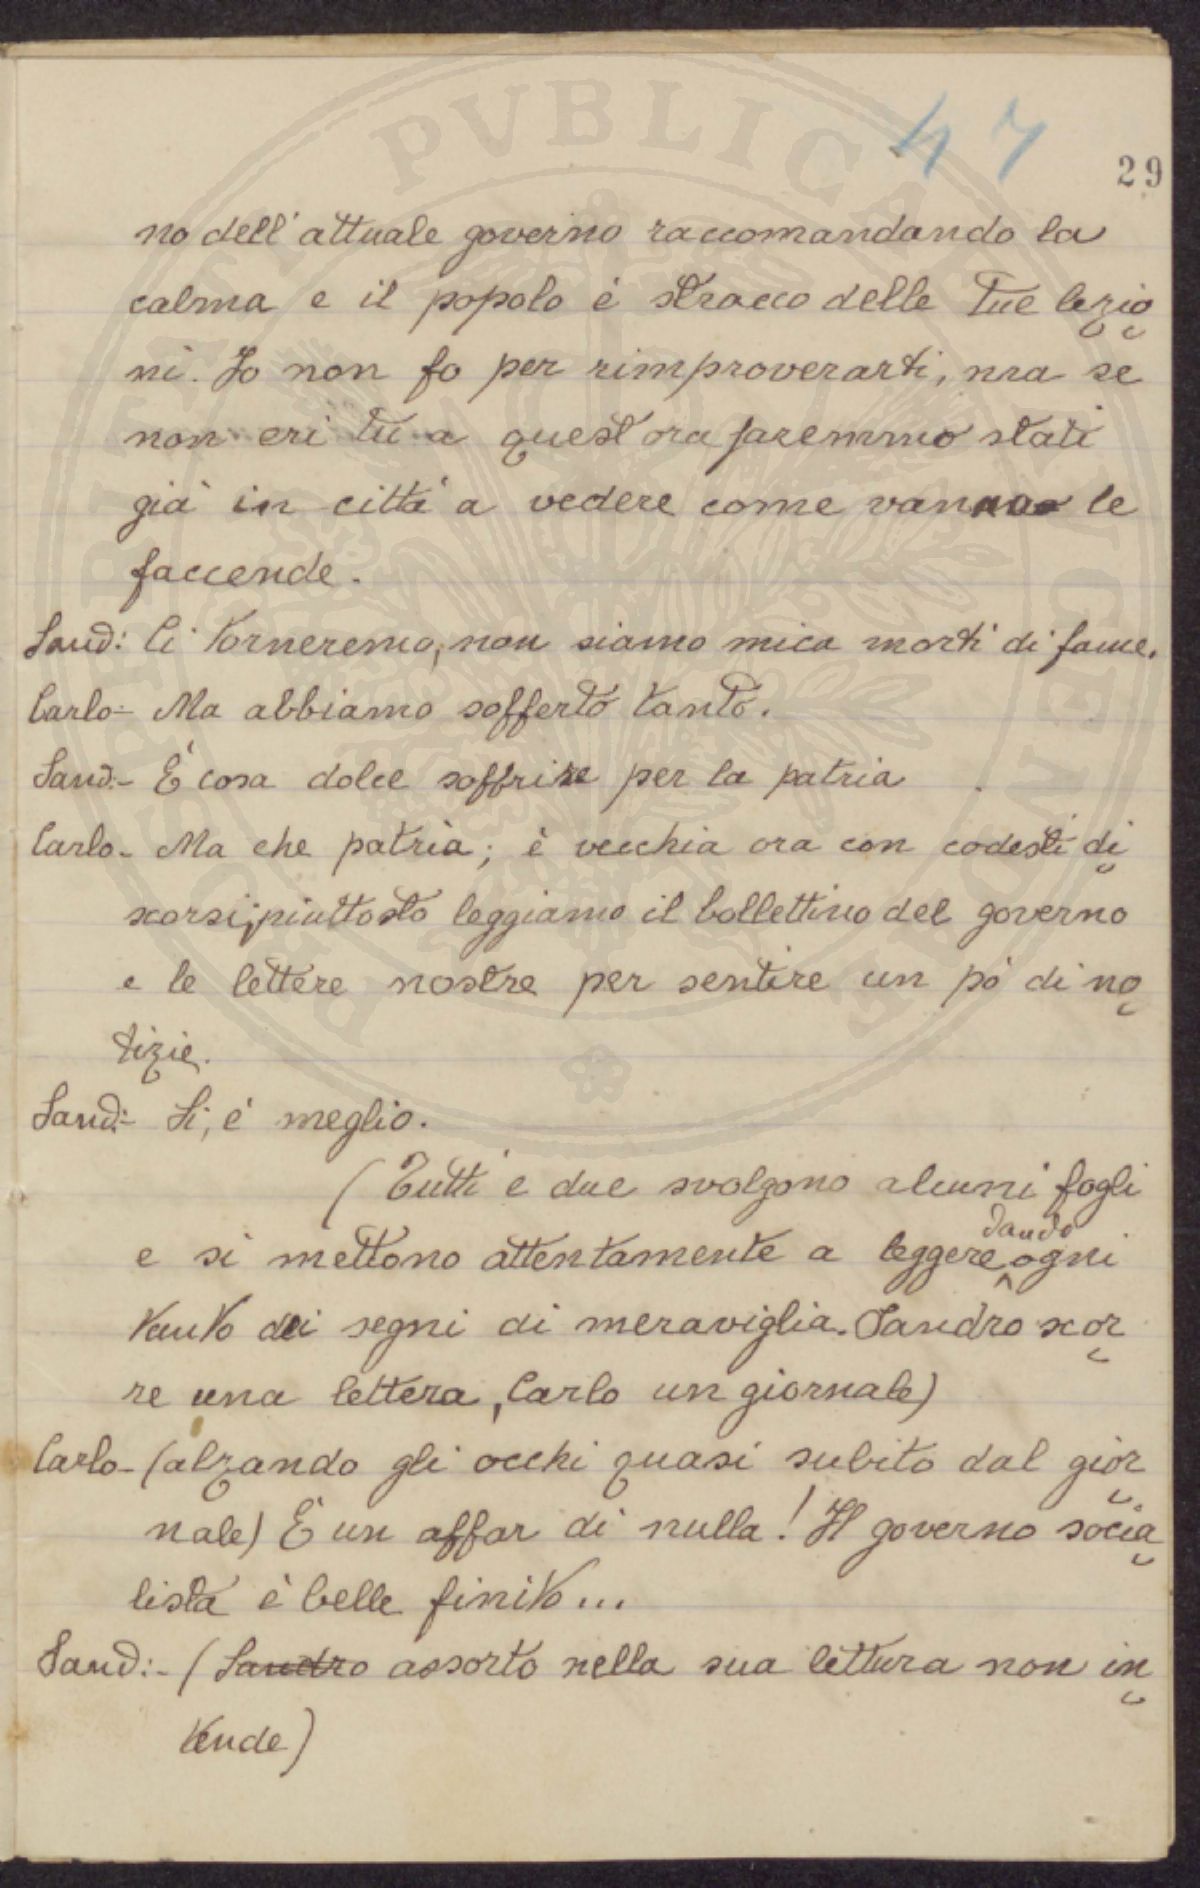 47
29
no dell'attuale governo raccomandando la
calma e il popolo è stracco delle tue lezio
ni. Io non fo per rimproverarti, ma se
non eri tu a quest'ora saremmo stati
già in città a vedere come vanno le
faccende.
Sand: Ci torneremo, non siamo mica morti di fame.
Carlo- Ma abbiamo sofferto tanto.
Sand:- È cosa dolce soffrire per la patria
Carlo- Ma che patria; è vecchia ora con codesti di
scorsi; piuttosto leggiamo il bollettino del governo
e le lettere nostre per sentire un pò di no
tizie.
Sand:- Si, è meglio.
(Tutti e due svolgono alcuni fogli
e si mettono attentamente a leggere dando ogni
tanto dei segni di meraviglia. Sandro scor
re una lettera, Carlo un giornale)
Carlo- (alzando gli occhi quasi subito dal gior
nale) È un affar di nulla! Il governo socia
lista è belle finito...
Sand:- (Sandro assorto nella sua lettura non in
tende)